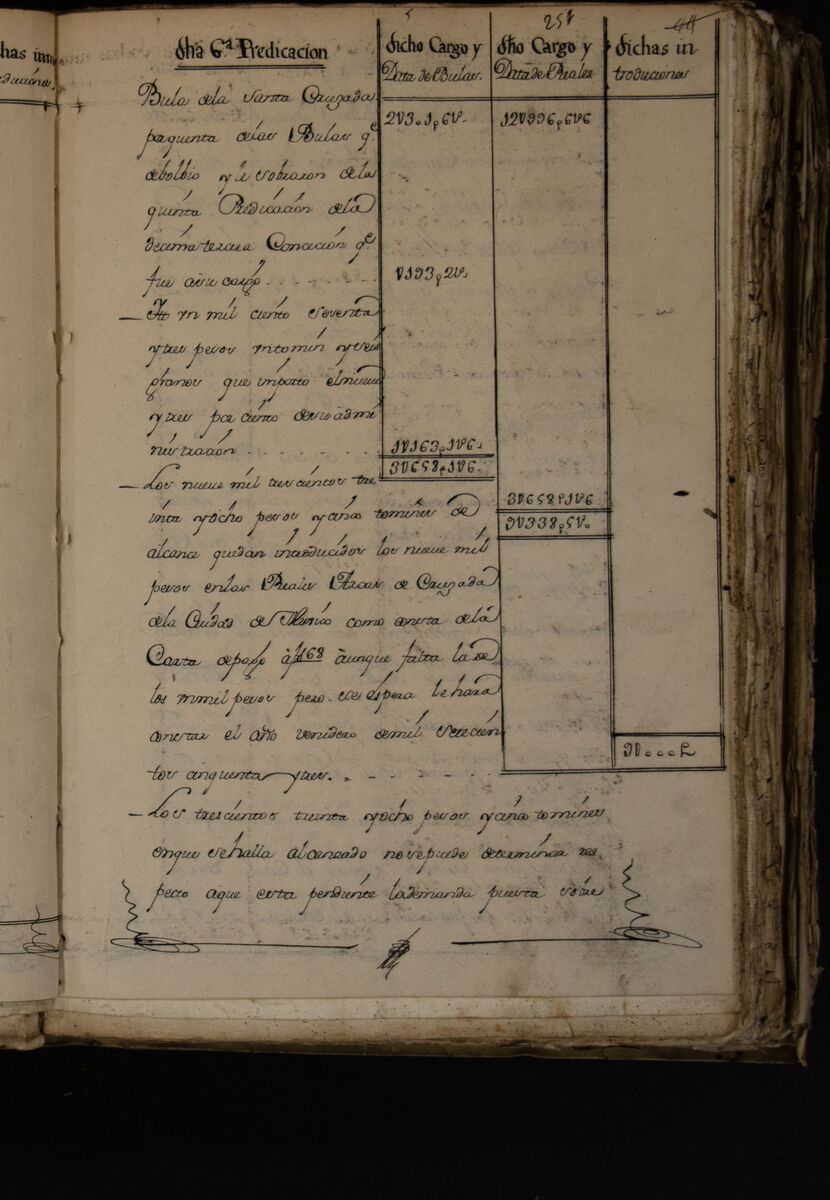 257
dha 6.ª Predicacion
dicho Cargo y
Data de Bulas.
dho Cargo y
Data de Reales
dichas in-
troduciones
Bula dela Santa Cruzada
2U301p6U. 12U996p6U6
por quenta delas Bulas q.e
debolbio y le sobraron dela
quinta Predicacion dela
decima tercera Concecion q.e
fue a su cargo. U193p2U.
It. Vn mil ciento seSenta
y tres pesos Vn tomin y seis
granos que importo el nueve
y tres por ciento de su admi
nistracion 1U163p1U6.
3U658p1U6.
Los nueve mil trescientos tre
3U658p1U6
inta y ocho pesos y cinco tomines de
9U338p5U.
alcance quedan introducidos los nueve mil
pesos en las Reales Arcas de Cruzada
dela Ciudad de Mexico como consta dela
Carta de pago à f168 aunque falta la de
los mil pesos pero se espera le hara
constar el año venidero de mil setecien
tos cinquenta y tres.
9U000L
Los trescientos treinta y ocho pesos y cinco tomines
en que se halla alcanzado no se puede determinar res
pecto a que esta pendiente la demanda puesta sobre